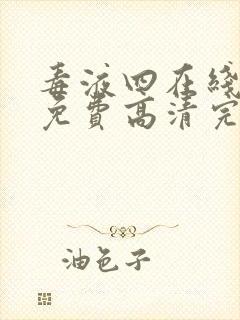 毒液四在线
免费高清完
油色子